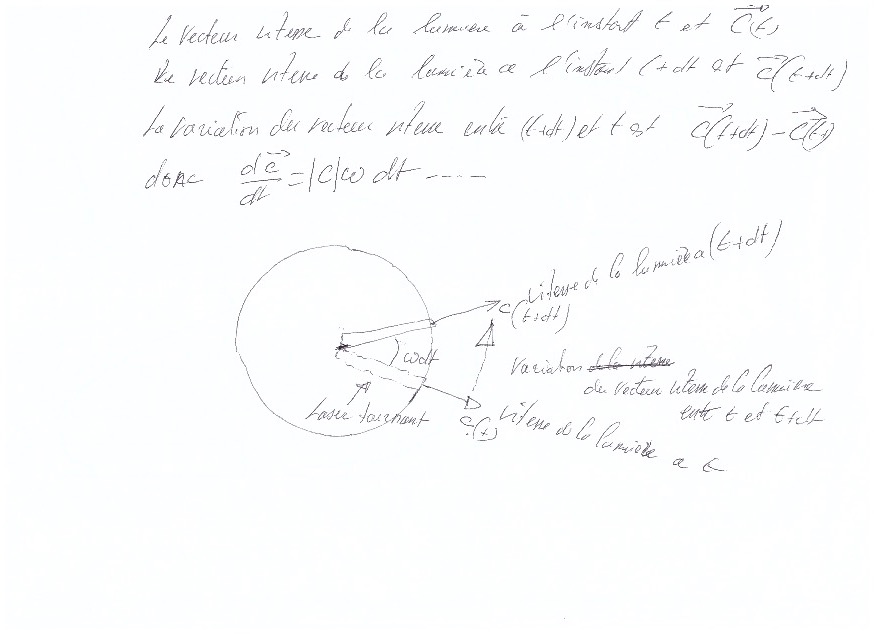 Le vecteur vitesse de la lumière à l'instant t et C(t)
Le vecteur vitesse de la lumière a l'instant t+dt et C(t+dt)
La variation du vecteur vitesse entre (t+dt) et t est C(t+dt) - C(t)
donc dc/dt = |C|ω dt -----
vitesse de la lumière a (t+dt)
C(t+dt)
ωdt
Variation de la vitesse
du vecteur vitesse de la lumière
entre t et t+dt
Laser tournant
C(t)
vitesse de la lumière a t